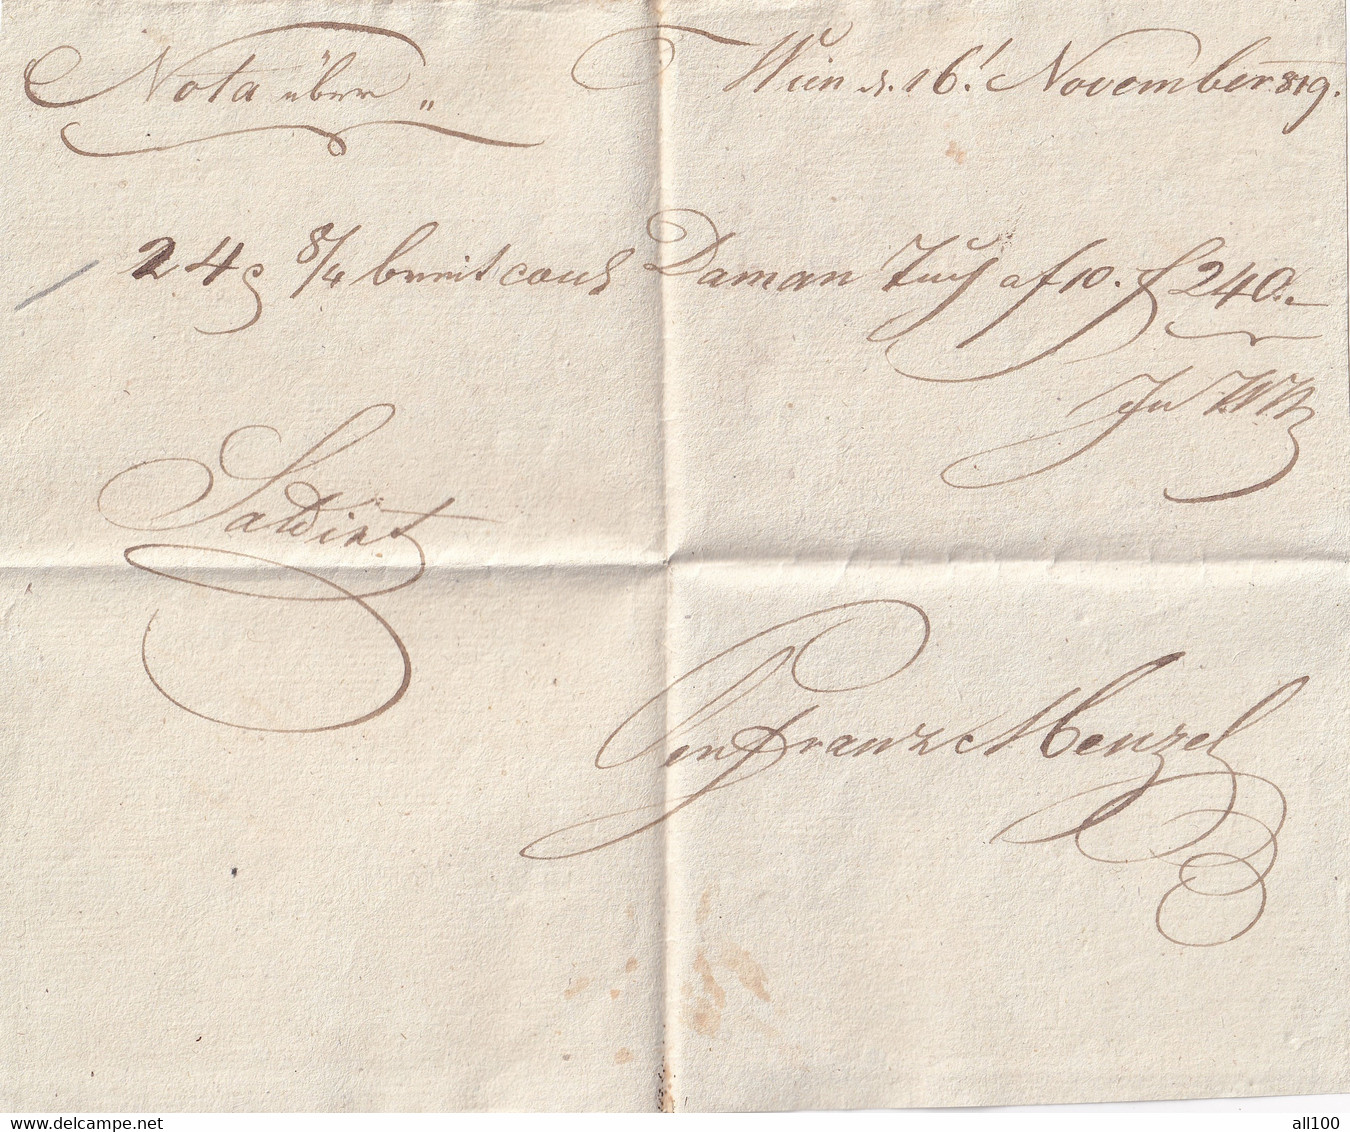 Nota über „ Wien d. 16.' November 819.
24 8/4 breit Daman Tuch a f 10. f 240.–
In WW
Saldirt
Franz Menzel
delcampe.net
all100